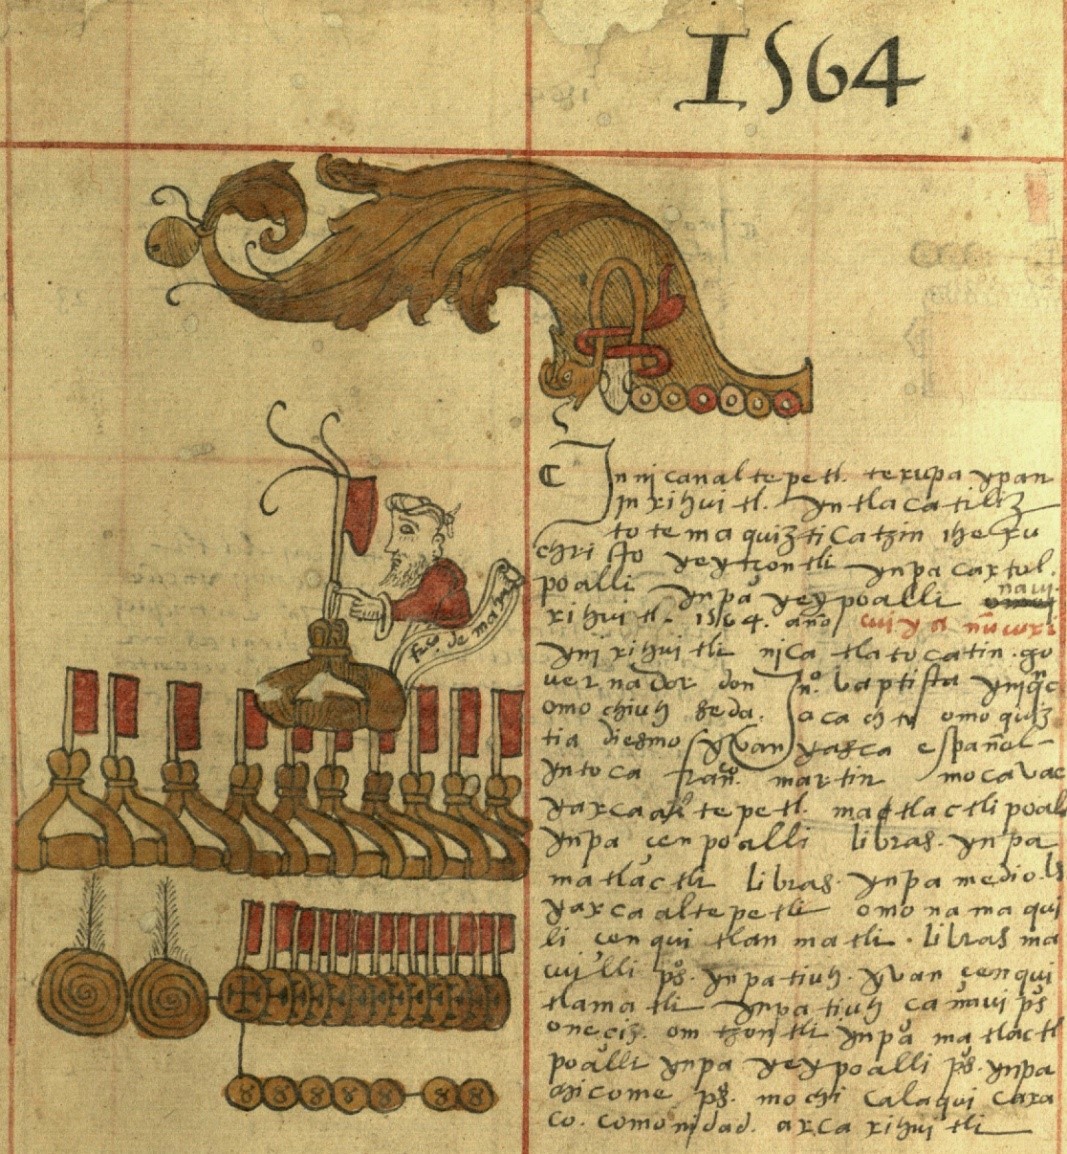 1564
fraco de martin
¶ In nican altepetl. texupa ypan
in xihuitl. yn tlacatiliz
totemaquizticatzin ihesu
christo yeytzontli ynpa caxtol.
poalli ynpa yeypoalli navi
xihuitl. 1564. año
yni xihuitli nica tlatocatin. go
vernador don Juº. baptista yniqc
omochiuh seda. oquiz
tia diezmo yvan yaxca español
yntoca franco. martin mocavae
yaxca altepetl. matlactlipoal
ynpa cenpoalli libras. ynpa
matlactli libras. ynpa medio. ls
yaxca altepetli omonamaqui
li cenquitlanmatli. libras ma
cuilli ps. ynpatiuh. yvan cenqui
tlamatli ynpatiuh ca navi ps
onecis. omtzontli ynpa matlactl
poalli ynpa yeypoalli ps. ynpa
chicome ps. mochi calaqui caxa
co. comonidad. axca xihuitli